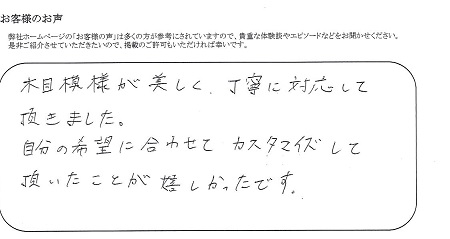 お客様のお声
弊社ホームページの「お客様の声」は多くの方が参考にされていますので、貴重な体験談やエピソードなどをお聞かせください。
是非ご紹介させていただきたいので、掲載のご許可もいただければ幸いです。
木目模様が美しく、丁寧に対応して
頂きました。
自分の希望に合わせて カスタマイズして
頂いたことが嬉しかったです。